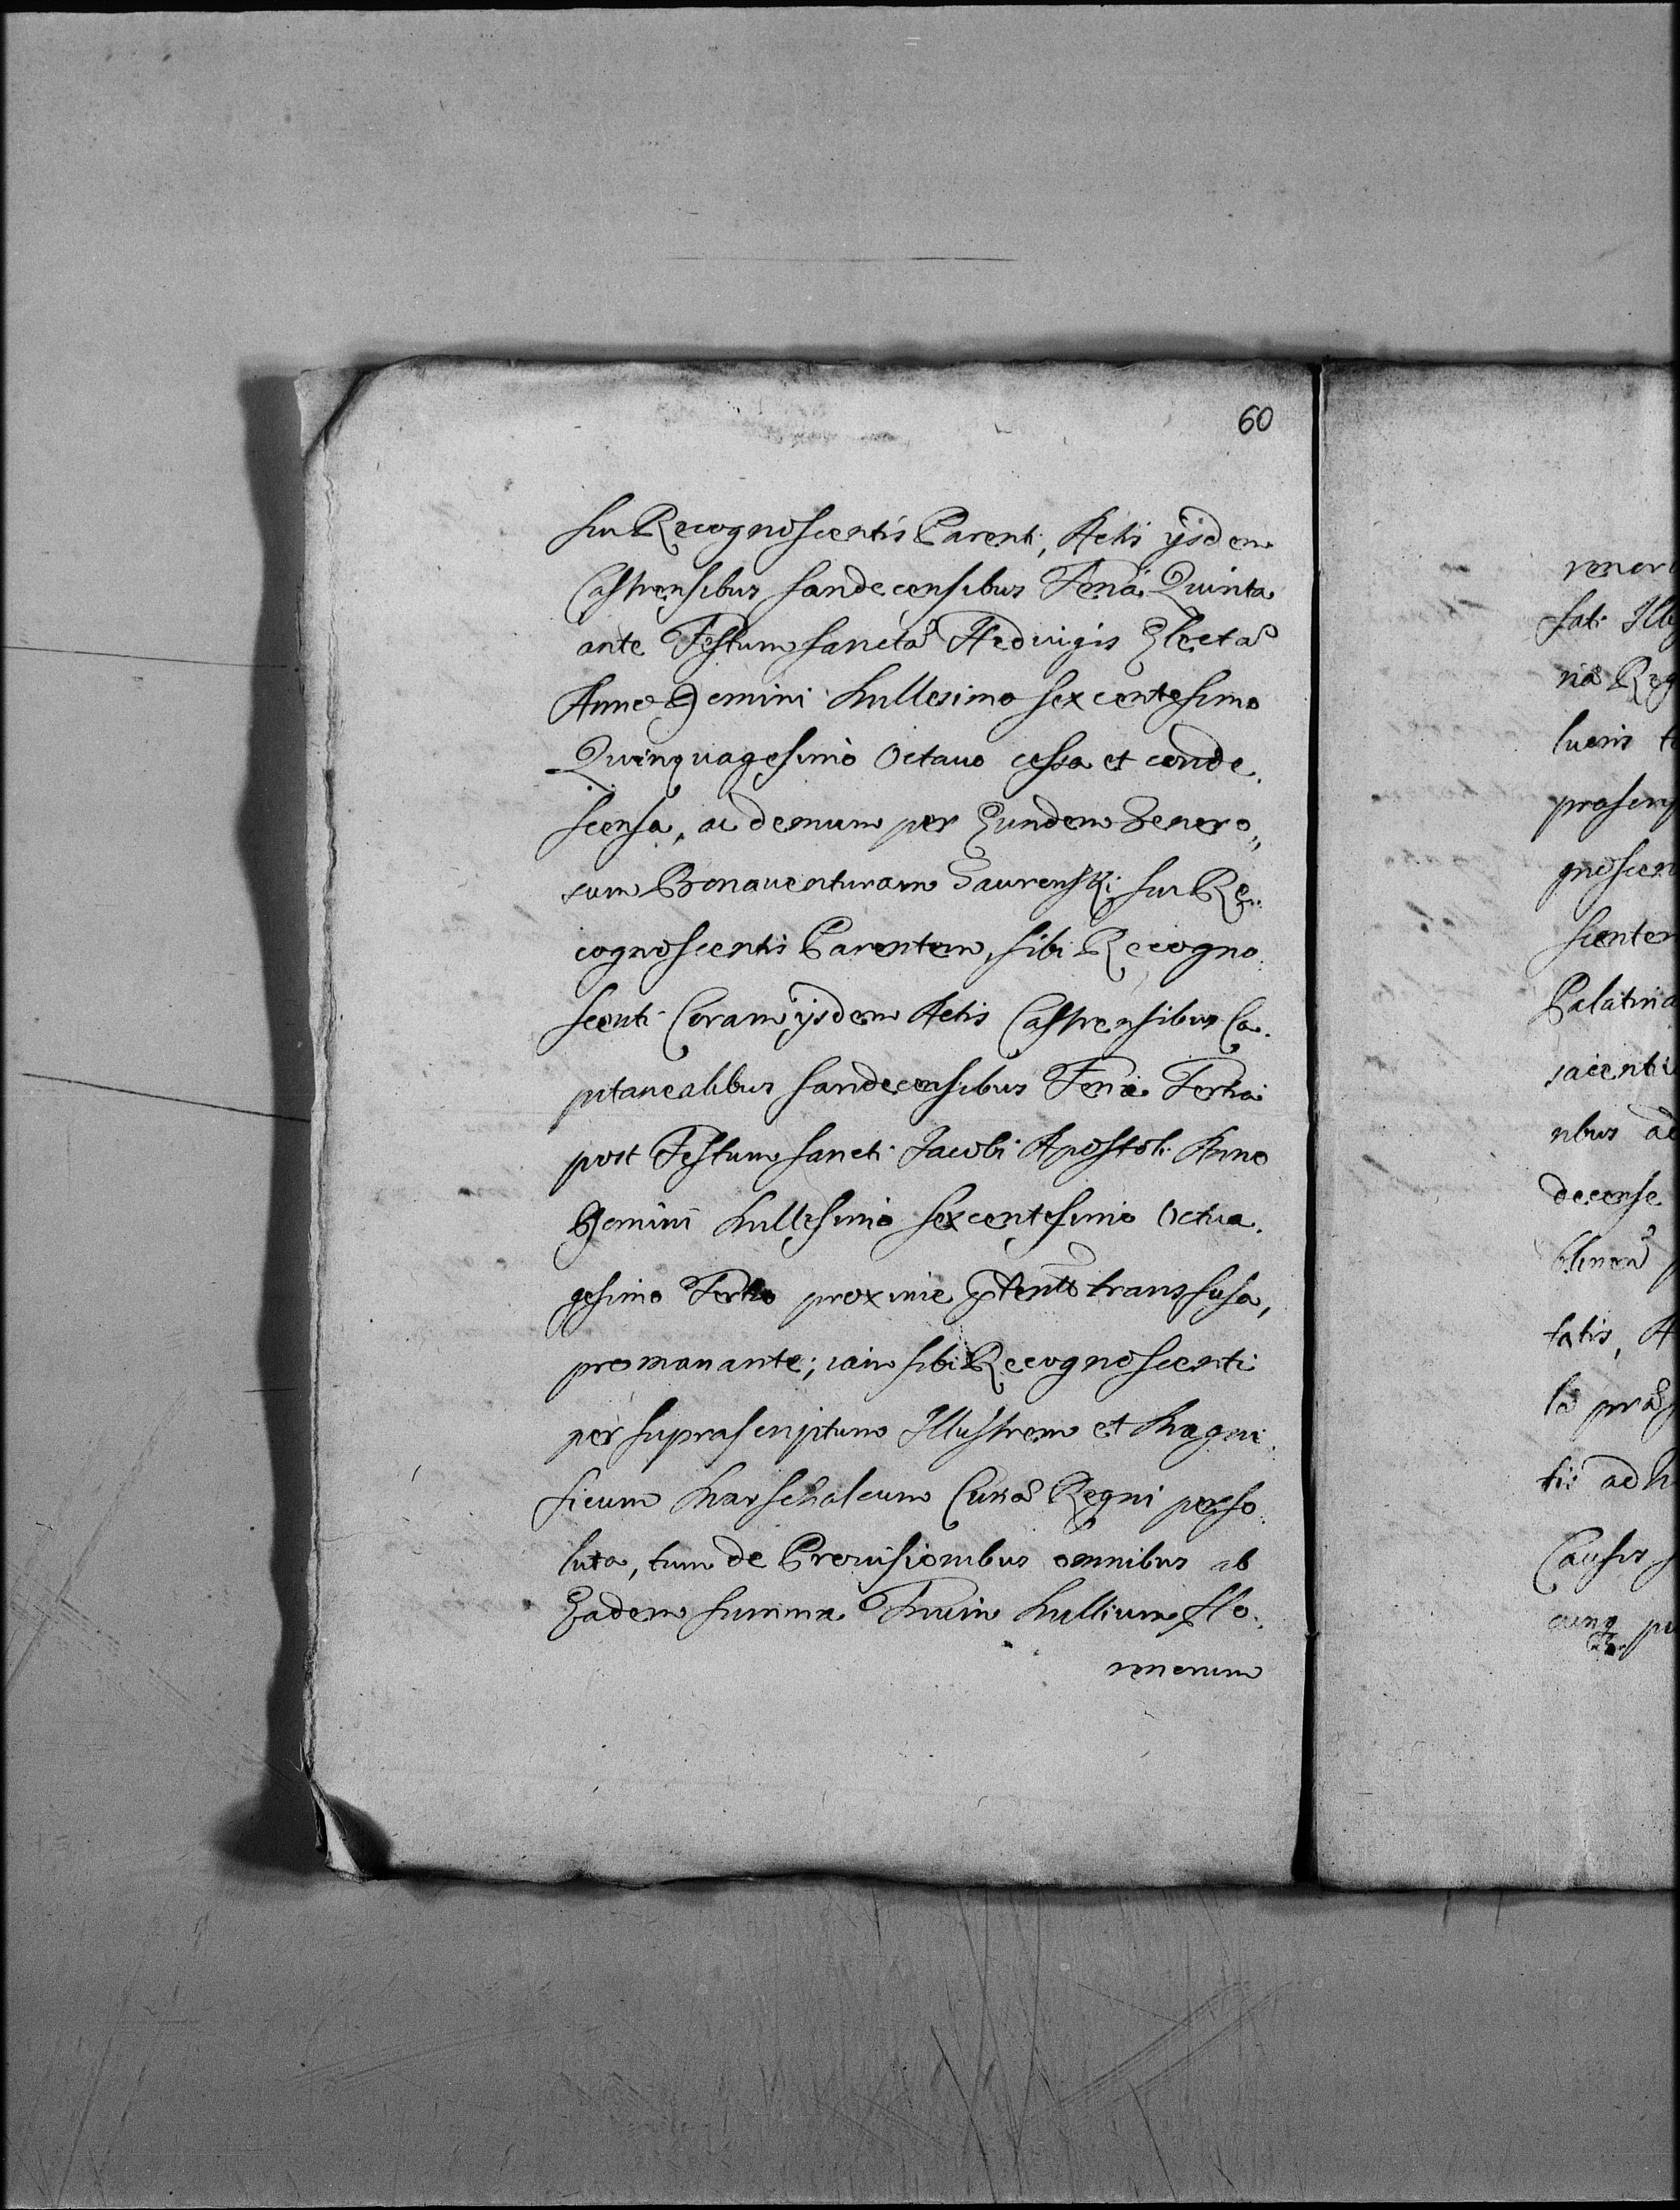 60
sui Recognoscentis Parenti, Actis ijsdem
Castrensibus Sandecensibus Feriâ Quinta
ante Festum Sanctæ Hedvigis Electæ
Anno Domini Millesimo Sexcentesimo
Quinquagesimò Octauo cessa et conde.
scensa, ac demum per Eundem Genero,,
sum Bonauenturam Taurenski sui Re,,
cognoscentis Parentem, sibi Recogno.
scenti Coram ijsdem Actis Castrensibus Ca.
pitanealibus Sandecensibus Feriâ Tertia
post Festum Sancti Jacobi Apostoli Anno
Domini Millesimo Sexcentesimo Octua.
gesimo Tertio proxime transfusa,
promanante; iam sibi Recognoscenti
per suprascriptum Illustrem et Magni.
ficum Marschalcum Curiæ Regni perso.
luta, tum de Prouisionibus omnibus ab
Eadem summa Trium Millium flo.
renorum
renor
sati Ill
riæ Reg
luens
præscrip
gnoscen
scentem
Palatina
iacenti
nbus ad
decense
tatis, A
tii ad
Causis
cunq